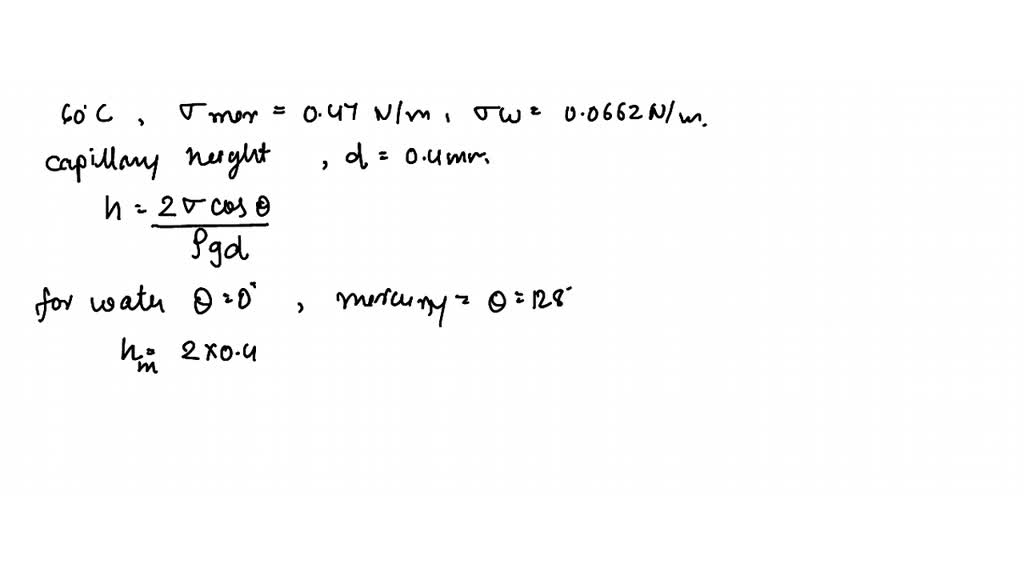 60°C , σ mer = 0.47 N/m , σw = 0.0662 N/m.
capillary height , d = 0.4mm.
h = 2σ cos θ
ρgd
for water θ = 0° , mercury = θ = 128°
hm = 2×0.4